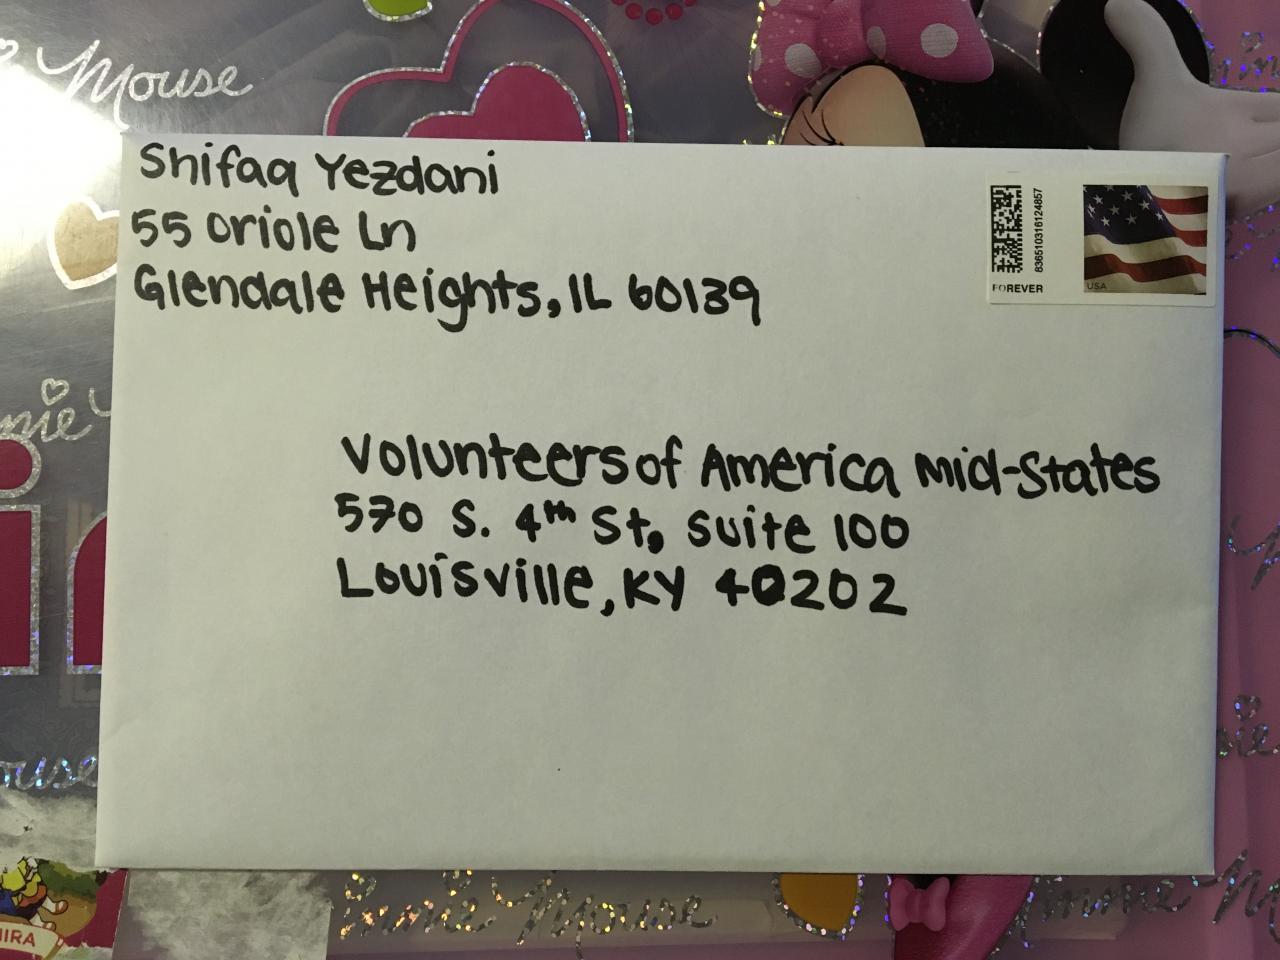 Mouse
Shifaq Yezdani
55 Oriole Ln
Glendale Heights, IL 60139
836510316124857
FOREVER
USA
Volunteers of America Mid-States
570 S. 4th St, Suite 100
Louisville, KY 40202
Minnie Mouse